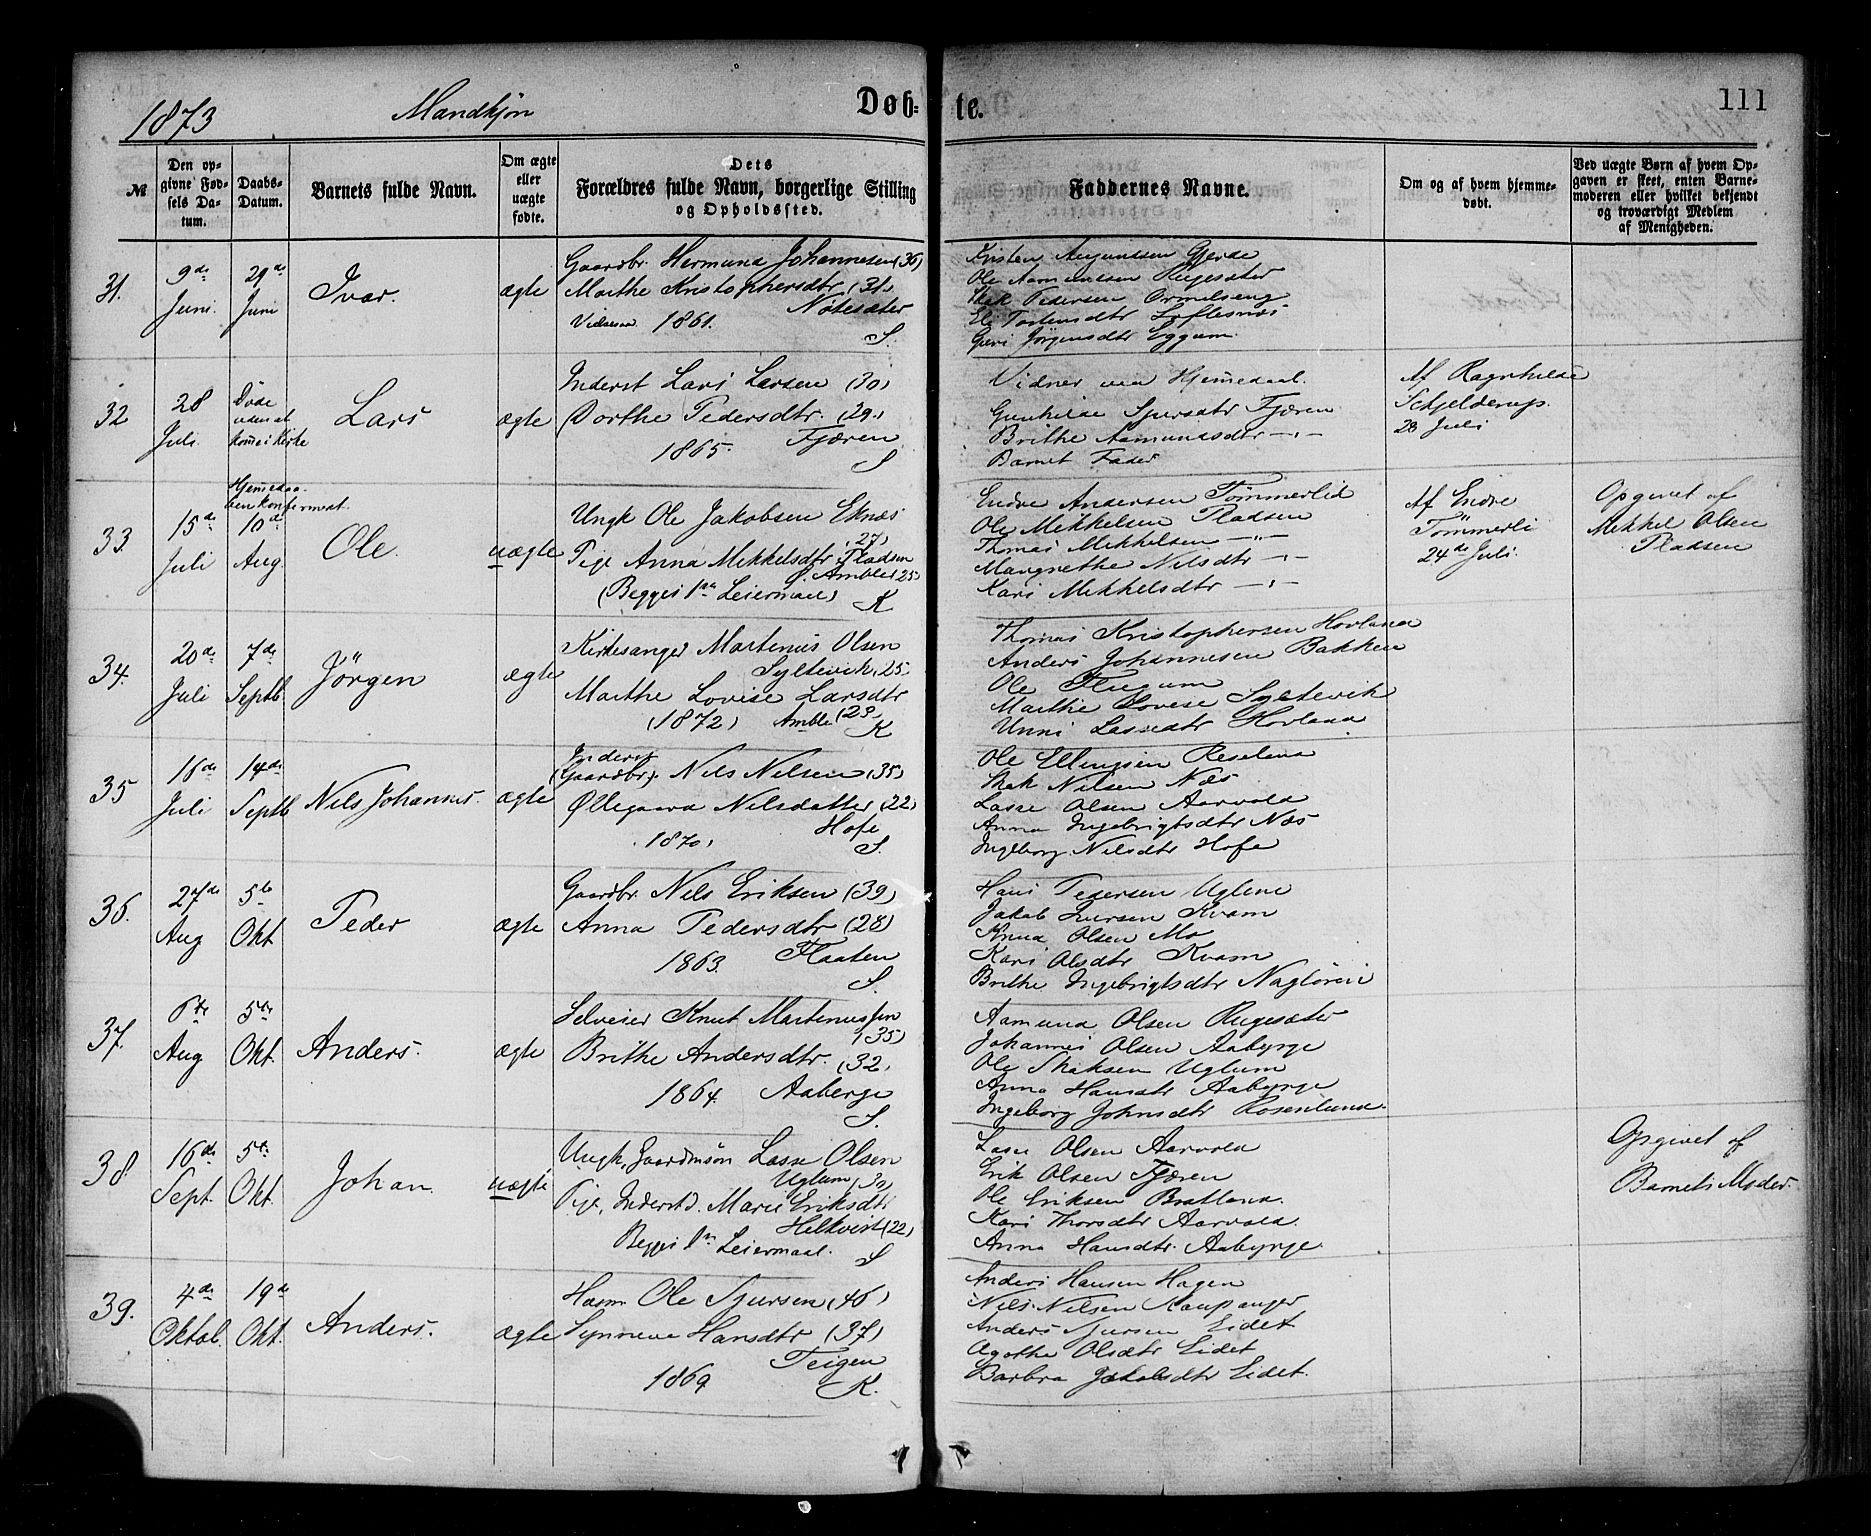 1873 Mandkjøn Døb- te. 111
№
Den op-
givne Fød-
sels Da-
tum.
Daabs-
Datum.
Barnets fulde Navn.
Om ægte
eller
uægte
fødte.
Dets
Forældres fulde Navn, borgerlige Stilling
og Opholdssted.
Faddernes Navne.
Om og af hvem hjemme-
døbt.
Ved uægte Børn af hvem Op-
gaven er skeet, enten Barne-
moderen eller hvilket bekjendt
og troværdigt Medlem
af Menigheden.
31.
9de
Juni.
29de
Juni
Ivar.
ægte
Gaardbr. Hermund Johannesen (36)
Marthe Kristophersdtr (31)
1861. Nøtesæter
S.
Kristen Aamundsen Gjerde
Ole Aamundsen Rugesæter
Skak Pedersen Ormelseng
Eli Torstensdtr Loftesnæs
Guri Jörgensdtr Eggum
32
28
Juli.
Døde
uden at
komme i Kirke
Lars
ægte
Inderst Lars Larsen (30)
Dorthe Pedersdtr. (29)
1865. Fjæren
S
Vidner ved Hjemedaab.
Gunhilde Sjursdtr Fjæren
Brithe Aamundsdtr —"—
Barnet Fader
Af Ragnhilde
Schjelderup.
28 Juli
33.
15de
Juli
Hjemedaa-
ben konfirmert.
10de
Aug.
Ole.
uægte
Ungk Ole Jakobsen Eknæs
(27)
Pige Anna Mikkelsdtr Pladsen
Amble (25)
(Begges 1ste Leiermaal) K
Endre Andersen Tømmerlid
Ole Mikkelsen Pladsen
Thomas Mikkelsen —"—
Margrethe Nilsdtr —"—
Kari Mikkelsdtr —"—
Af Endre
Tømmerli
24de Juli.
Opgivet af
Mikkel Olsen
Pladsen
34.
20de
Juli
7de
Septb.
Jörgen
ægte
Kirkesanger Martinus Olsen
Syltevik (25
Marthe Lovise Larsdtr
(1872) Amble (23
K
Thomas Kristophersen Hovland
Anders Johannesen Bakken
Ole Flugum
Marthe Lovise Syltevik
Unni Lassedtr Hovland
35
18de
Juli
14de
Septb
Nils Johannes.
ægte
Inderst
(Gaardbr). Nils Nilsen (35)
Øllegaard Nilsdatter (22)
Hofe
1870. S.
Ole Ellingsen Roseland
Skak Nilsen Næs
Lasse Olsen Aarvold
Anna Ingebrigtsdtr Næs
Ingeborg Nilsdtr Hofe
36.
27de
Aug
5te
Okt
Peder
ægte
Gaardbr. Nils Eriksen (39)
Anna Pedersdtr (28)
1863. Flaaten
S.
Hans Pedersen Uglum
Jakob Iversen Kvam
Knud Olsen Mo
Kari Olsdtr Kvam
Brithe Ingebrigtsdtr Nagløren
37.
6te
Aug
5te
Okt.
Anders.
ægte
Selveier Knut Martinussen
(35)
Brithe Andersdtr. (32,
1864. Aaberge
S.
Aamund Olsen Rugesæter
Johannes Olsen Aabyrge
Ole Skaksen Uglum
Anna Hansdtr Aabyrge
Ingeborg Johnsdtr Rosenlund.
38.
16de
Sept.
5te
Okt.
Johan.
uægte
Ungk, Gaardmsøn Lasse Olsen
Uglum (30)
Pige, Inderst. Marie Eriksdtr
Helkvist (22)
Begges 1ste Leiermaal. S
Lasse Olsen Aarvold
Erik Olsen Fjæren
Ole Eriksen Bratland.
Kari Thorsdtr Aarvold.
Anna Hansdtr. Aabyrge.
Opgivet af
Barnets Moder.
39.
4de
Oktob.
19de
Okt.
Anders.
ægte
Husm Ole Sjursen (46)
Synneve Hansdtr (37)
Teigen
1869 K.
Anders Hansen Hagen
Nils Nilsen Kaupanger
Anders Sjursen Eidet
Agothe Olsdtr Eidet
Barbra Jakobsdtr Eidet.